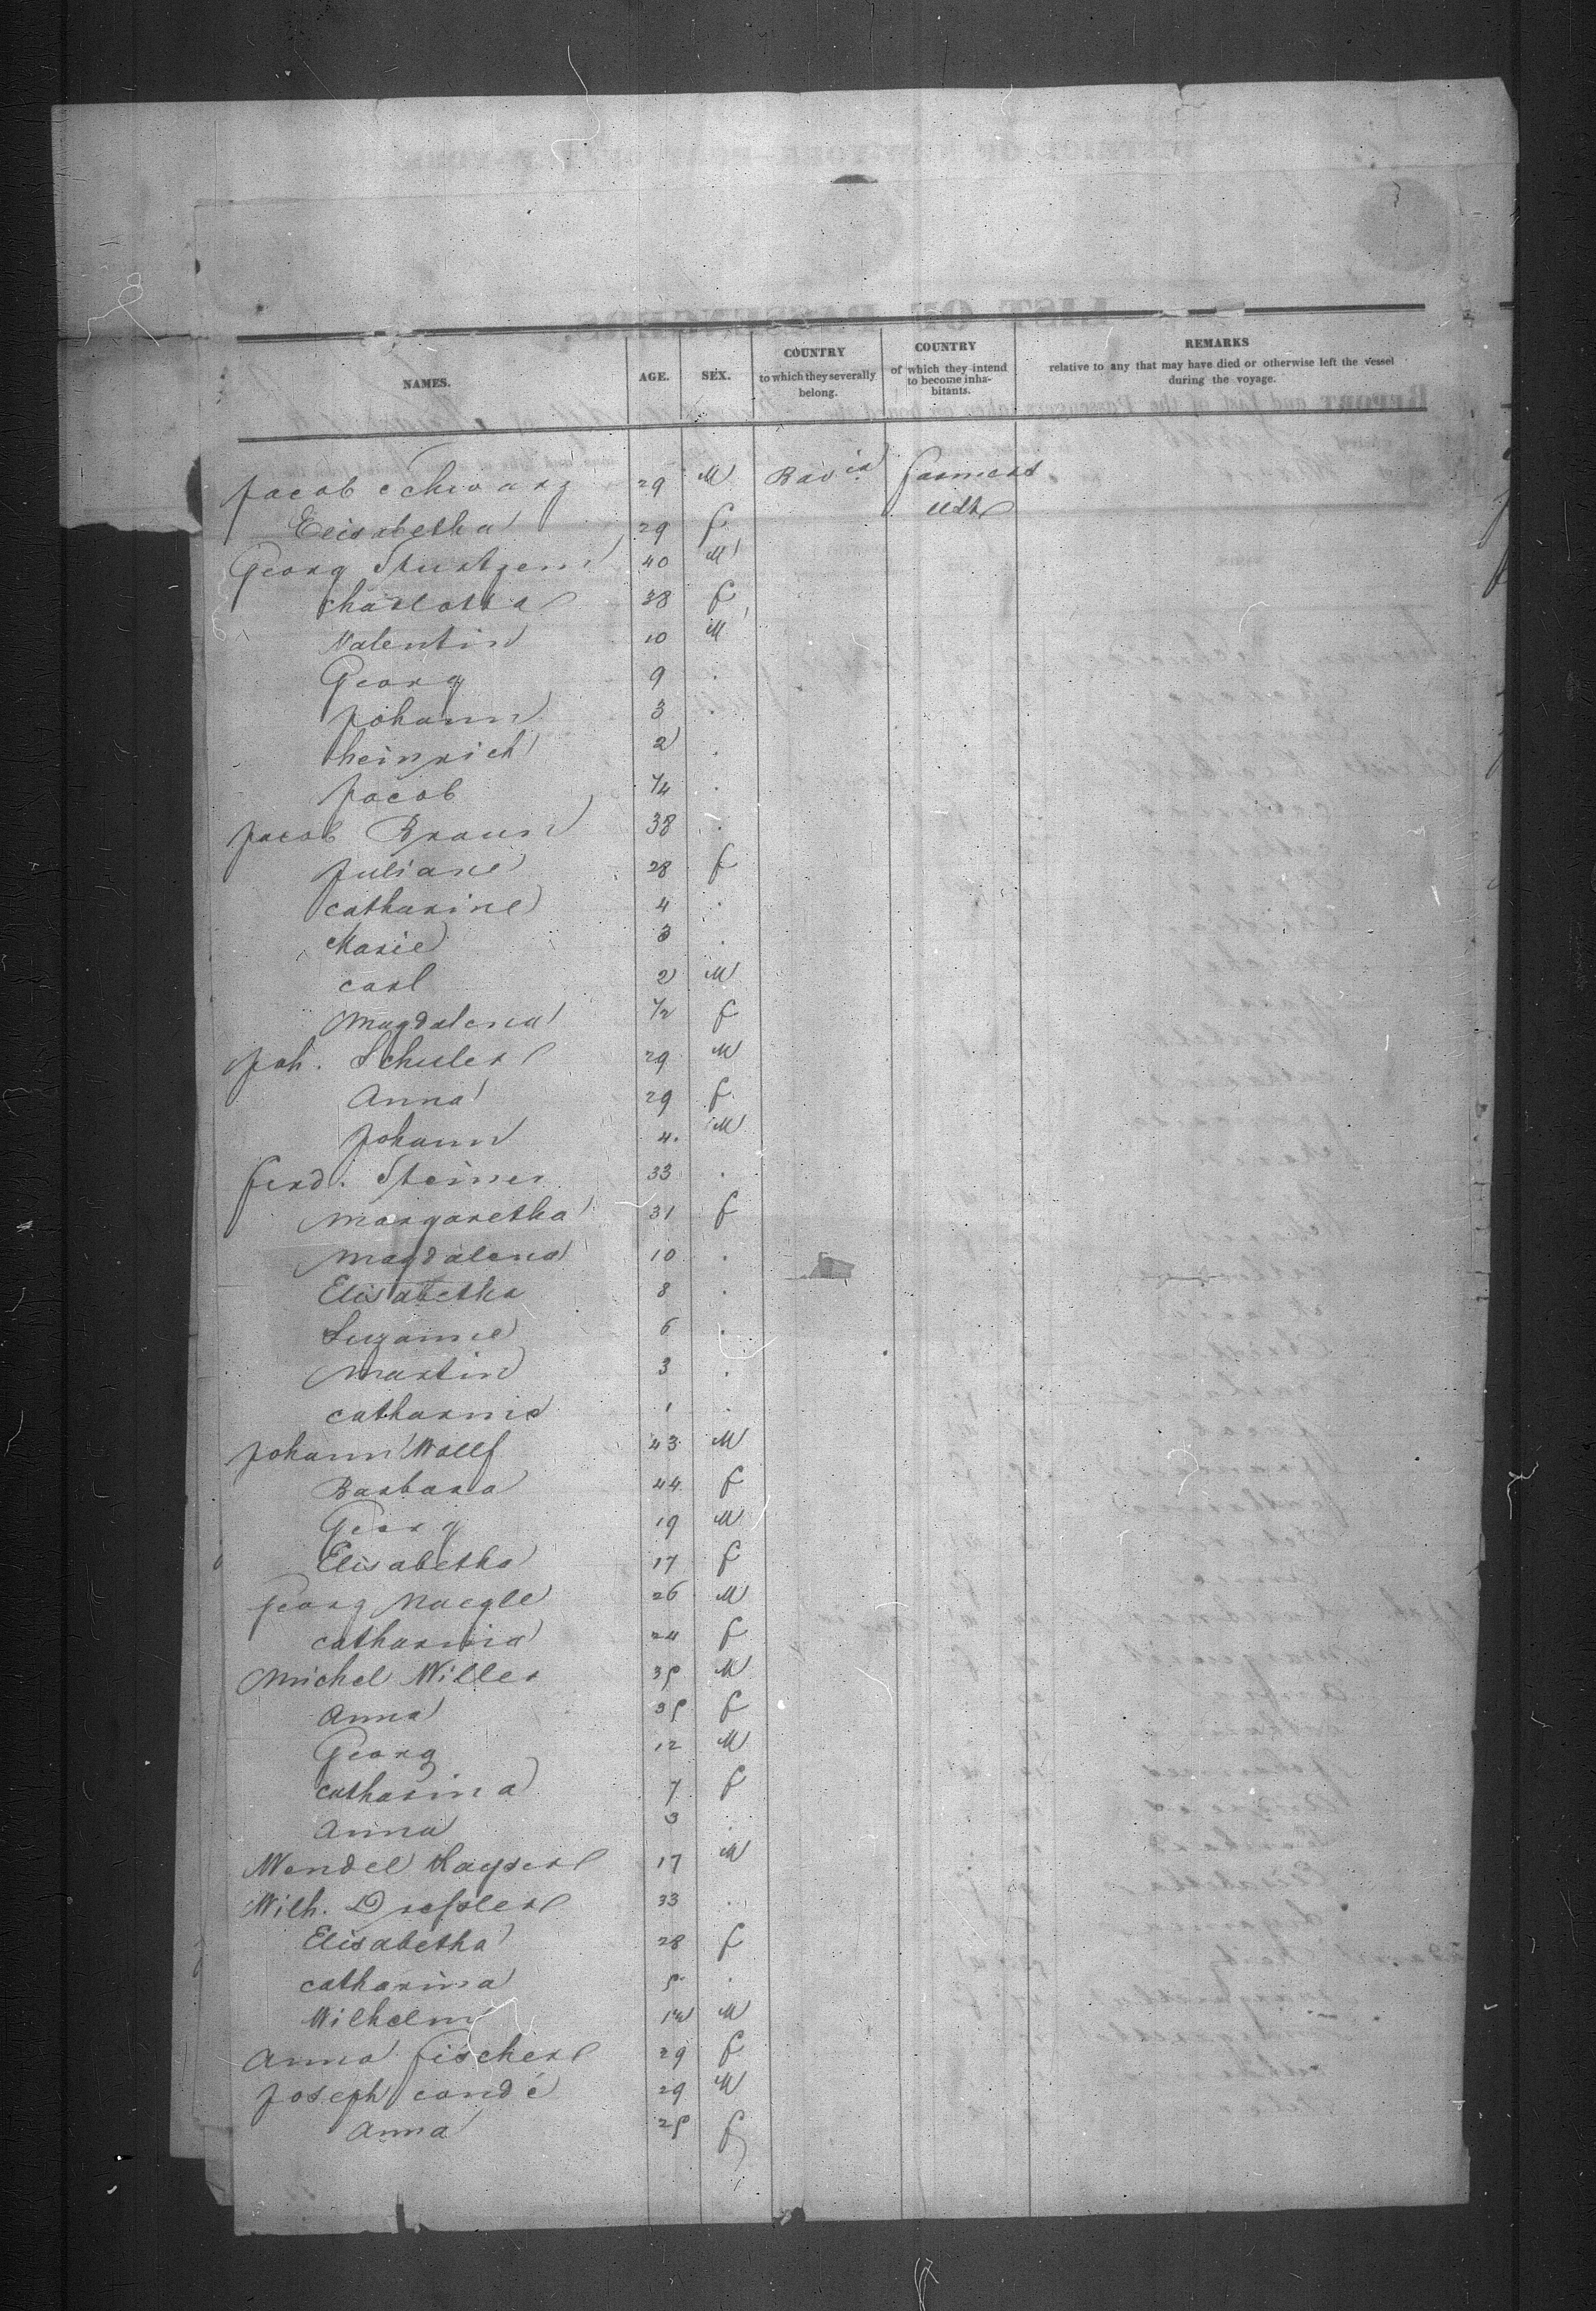 NAMES. AGE. SEX. COUNTRY to which they severally belong. COUNTRY of which they intend to become inhabitants. REMARKS relative to any that may have died or otherwise left the vessel during the voyage.
Jacob Schwarz 29 M Bav farmers
Elisabetha 29 f
Georg 40 M
Charlotta 38 f
Valentin 10 M
Georg 9 .
Johann 3 .
heinrich 2 .
Jacob 1/4 .
Jacob Braun 38 .
Juliane 28 f
catharine 4 .
Marie 3 .
carl 2 M
Magdalena 1/2 f
Joh. Schuler 29 M
Anna 29 f
Johann 4. M
ferd. Steiner 33 .
Margaretha 31 f
Magdalena 10 .
Elisabetha 8 .
Suzanne 6 .
Martin 3 .
catharine 1 .
Johann Wollf 43 M
Barbara 44 f
Georg 19 M
Elisabetha 17 f
Georg Naegle 26 M
catharina 24 f
Michel Willer 35 M
Anna 35 f
Georg 12 M
catharina 7 f
Anna 3 .
Wendel Kayser 17 M
Wilh. Dressler 33 .
Elisabetha 28 f
catharina 5 .
Wilhelm M
Anna fischer 29 f
Joseph condé 29 M
Anna 25 f